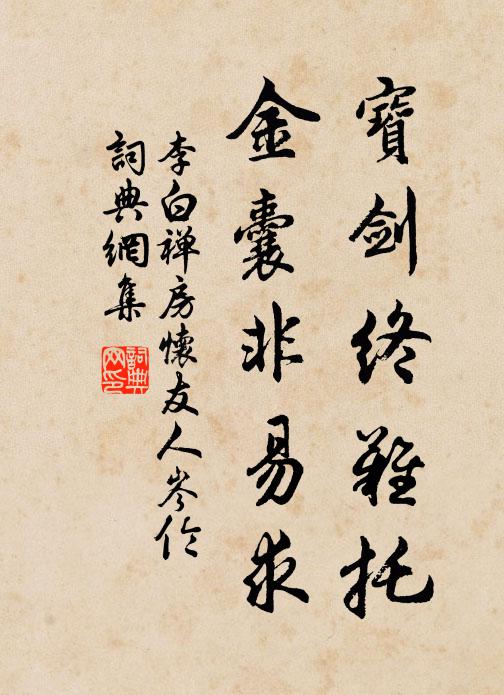 寶劍終難托
金囊非易求
李白禅房懷友人岑伦
詞典網集
詞典
网印